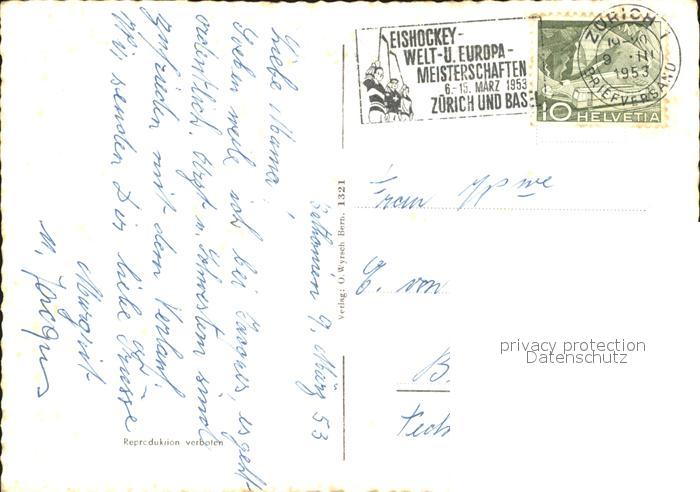 EISHOCKEY-
WELT-U. EUROPA-
MEISTERSCHAFTEN
6.-15. MÄRZ 1953
ZÜRICH UND BASEL
ZÜRICH 1
9. III
1953
BRIEFVERSAND
10 HELVETIA
9. März 53
Liebe Mama,
Soeben weile ich bei Jacques, es geht
ordentlich. Arzt u. Schwestern sind
zufrieden mit dem Verlauf.
Wir senden Dir liebe Grüsse
Margrit
u. Jacques
Verlag: O. Wyrsch Bern. 1321
Frau
E. von
B.
Reproduktion verboten
privacy protection
Datenschutz